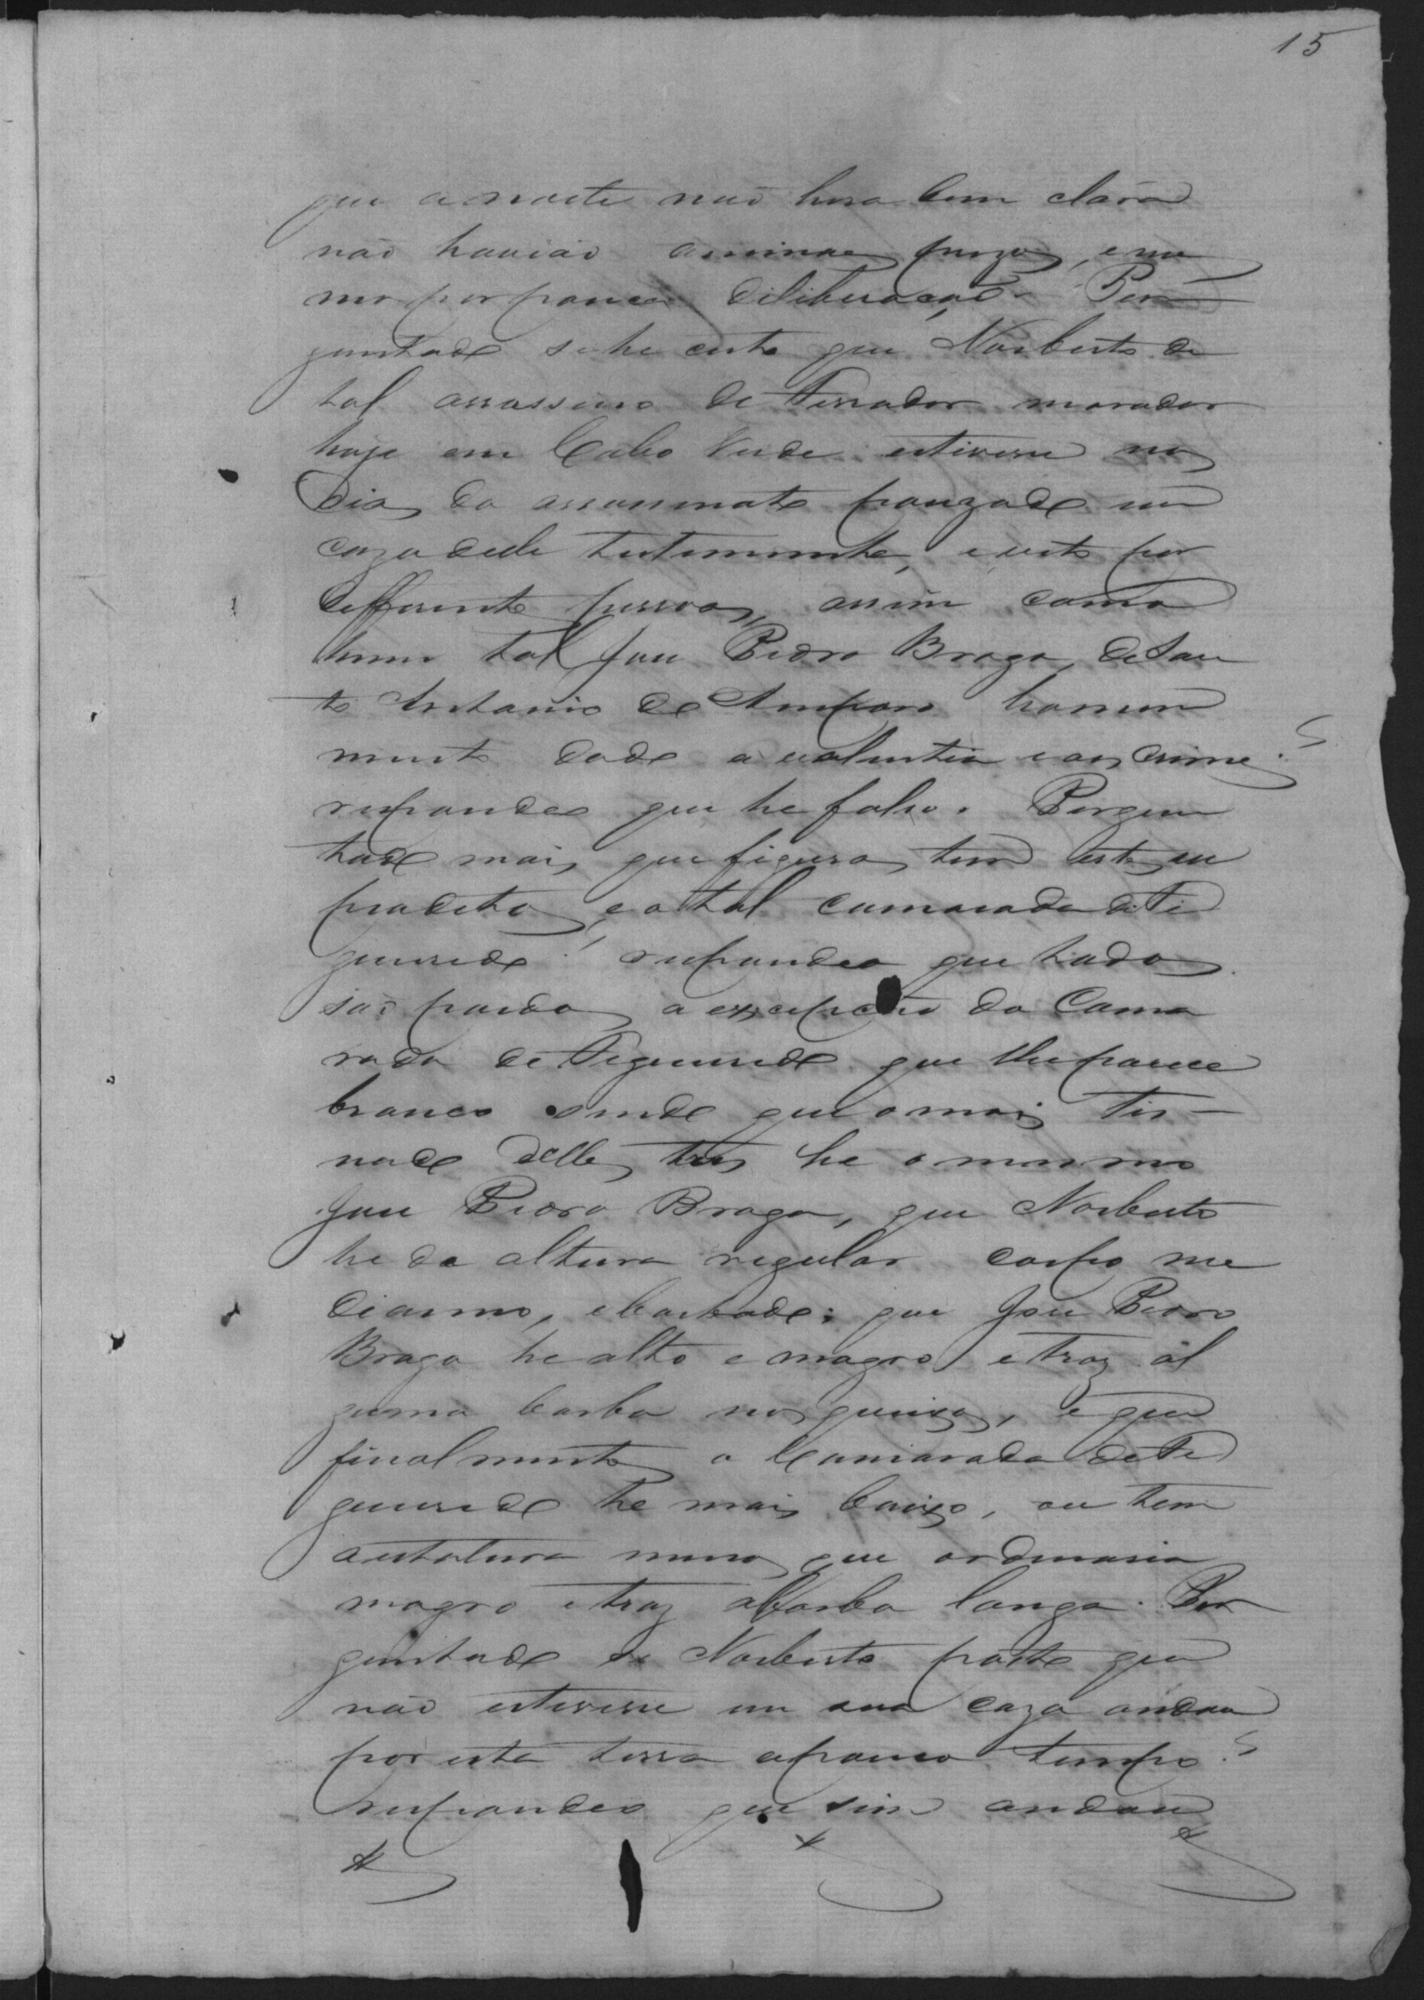 15
que a noute não hera bem clara
não havião
mo por pouca diliberação. Per
guntado se he certo que Norberto de
tal assassino de Ferrador morador
hoje em Cabo Verde estivesse nos
dias do assassinato pouzado em
caza delle testemunha, e visto por
differente pessoas, assim como
hum tal José Pedro Braga, de San
to Antonio do Amparo homem
muito dado a valentia e aos crime?
respondeo que he falso. Pergun
tado mais, que figura tem este su
praditos, e o tal camarada de Fi
gueiredo? respondeo que todos
são pardos a excepção do Cama
rada de Figueiredo que lhe parece
branco sendo que o mais tis-
nado delles tres he o mesmo
José Pedro Braga, que Norberto
he da altura regular corpo me
diano, e barbado; que José Pedro
Braga he alto e magro e traz al
guma barba nos queixos, e que
finalmente o Camarada de Fi
gueiredo he mais baixo, ou tem
a estatura menos que ordinaria
magro e traz a barba longa. Per
guntado se Norberto posto que
não estivesse em sua caza andou
por esta terra a pouco tempo?
respondeo que sim andou